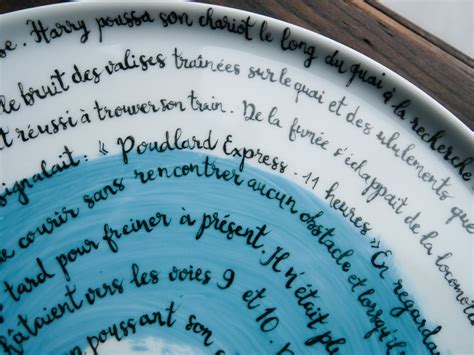 se. Harry poussa son chariot le long du quai à la recherche
le bruit des valises traînées sur le quai et des ululements que
t réussi à trouver son train. De la fumée s'échappait de la locomo
signalait : « Poudlard Express . 11 heures ». En regardan
e courir sans rencontrer aucun obstacle et lorsqu'il
tard pour freiner à présent. Il n'était pl
hâtaient vers les voies 9 et 10.
poussant son